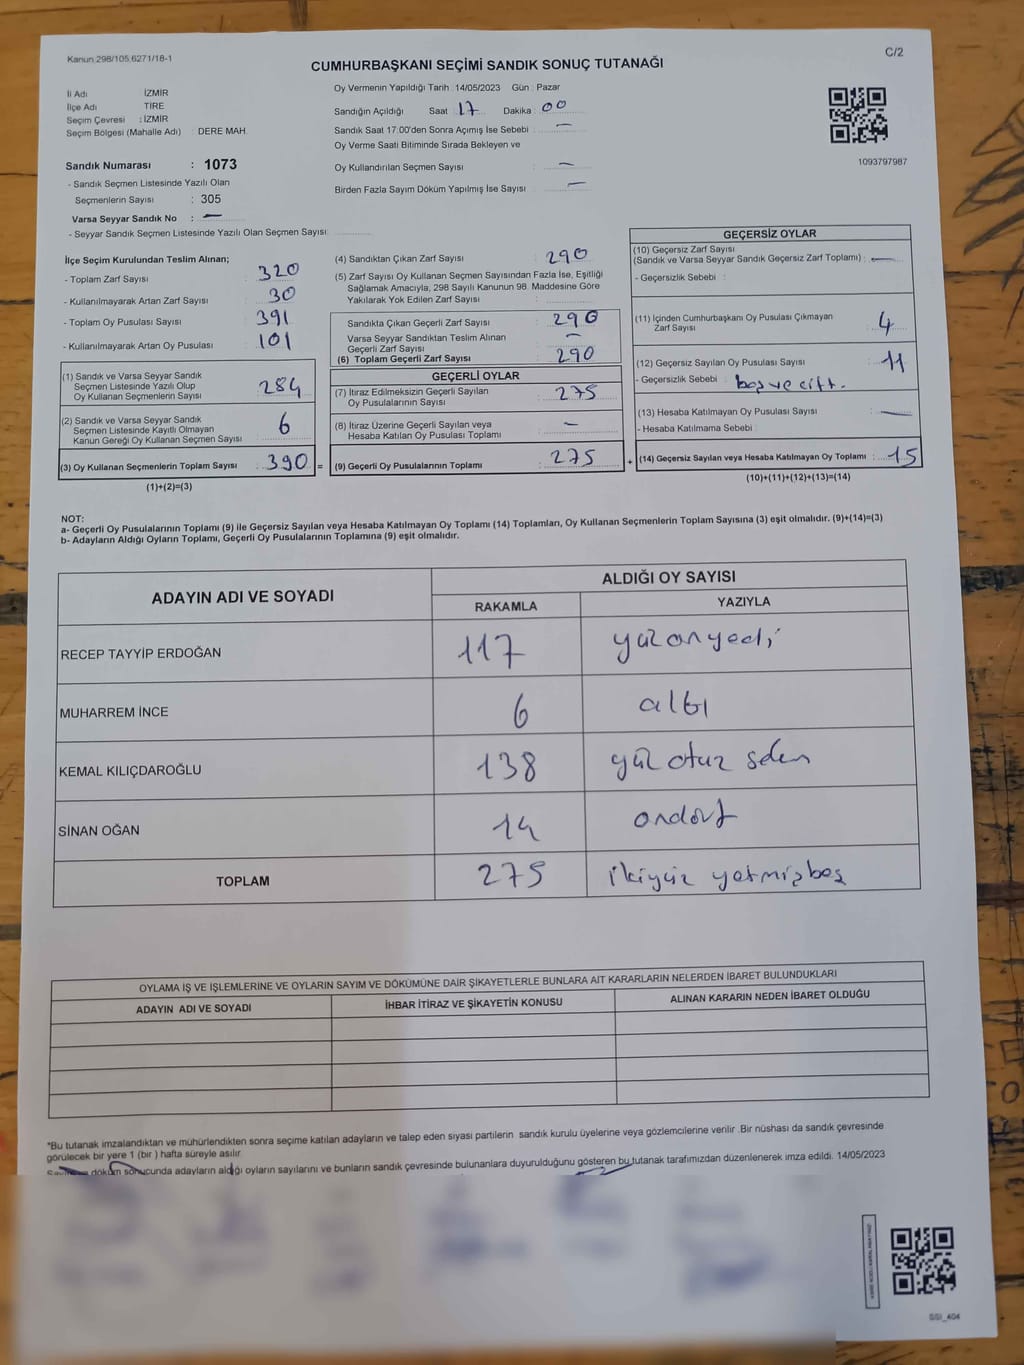 Kanun 298/105,6271/18-1
C/2
CUMHURBAŞKANI SEÇİMİ SANDIK SONUÇ TUTANAĞI
İl Adı İZMİR
İlçe Adı TİRE
Seçim Çevresi : İZMİR
Seçim Bölgesi (Mahalle Adı) : DERE MAH.
Oy Vermenin Yapıldığı Tarih 14/05/2023 Gün : Pazar
Sandığın Açıldığı Saat 17 Dakika 00
Sandık Saat 17.00'den Sonra Açımış İse Sebebi : —
Oy Verme Saati Bitiminde Sırada Bekleyen ve
Oy Kullandırılan Seçmen Sayısı : —
Birden Fazla Sayım Döküm Yapılmış İse Sayısı : —
1093797987
Sandık Numarası : 1073
- Sandık Seçmen Listesinde Yazılı Olan
Seçmenlerin Sayısı : 305
Varsa Seyyar Sandık No : —
- Seyyar Sandık Seçmen Listesinde Yazılı Olan Seçmen Sayısı :
İlçe Seçim Kurulundan Teslim Alınan;
- Toplam Zarf Sayısı : 320
- Kullanılmayarak Artan Zarf Sayısı : 30
- Toplam Oy Pusulası Sayısı : 391
- Kullanılmayarak Artan Oy Pusulası : 101
(1) Sandık ve Varsa Seyyar Sandık
Seçmen Listesinde Yazılı Olup
Oy Kullanan Seçmenlerin Sayısı : 284
(2) Sandık ve Varsa Seyyar Sandık
Seçmen Listesinde Kayıtlı Olmayan
Kanun Gereği Oy Kullanan Seçmen Sayısı : 6
(3) Oy Kullanan Seçmenlerin Toplam Sayısı : 390 =
(1)+(2)=(3)
(4) Sandıktan Çıkan Zarf Sayısı : 290
(5) Zarf Sayısı Oy Kullanan Seçmen Sayısından Fazla İse, Eşitliği
Sağlamak Amacıyla, 298 Sayılı Kanunun 98. Maddesine Göre
Yakılarak Yok Edilen Zarf Sayısı :
Sandıkta Çıkan Geçerli Zarf Sayısı : 290
Varsa Seyyar Sandıktan Teslim Alınan
Geçerli Zarf Sayısı : —
(6) Toplam Geçerli Zarf Sayısı : 290
GEÇERLİ OYLAR
(7) İtiraz Edilmeksizin Geçerli Sayılan
Oy Pusulalarının Sayısı : 275
(8) İtiraz Üzerine Geçerli Sayılan veya
Hesaba Katılan Oy Pusulası Toplamı : —
(9) Geçerli Oy Pusulalarının Toplamı : 275 +
GEÇERSİZ OYLAR
(10) Geçersiz Zarf Sayısı
(Sandık ve Varsa Seyyar Sandık Geçersiz Zarf Toplamı) : —
- Geçersizlik Sebebi :
(11) İçinden Cumhurbaşkanı Oy Pusulası Çıkmayan
Zarf Sayısı : 4
(12) Geçersiz Sayılan Oy Pusulası Sayısı : 11
- Geçersizlik Sebebi : boş ve çift.
(13) Hesaba Katılmayan Oy Pusulası Sayısı : —
- Hesaba Katılmama Sebebi :
(14) Geçersiz Sayılan veya Hesaba Katılmayan Oy Toplamı : 15
(10)+(11)+(12)+(13)=(14)
NOT:
a- Geçerli Oy Pusulalarının Toplamı (9) ile Geçersiz Sayılan veya Hesaba Katılmayan Oy Toplamı (14) Toplamları, Oy Kullanan Seçmenlerin Toplam Sayısına (3) eşit olmalıdır. (9)+(14)=(3)
b- Adayların Aldığı Oyların Toplamı, Geçerli Oy Pusulalarının Toplamına (9) eşit olmalıdır.
ADAYIN ADI VE SOYADI
ALDIĞI OY SAYISI
RAKAMLA YAZIYLA
RECEP TAYYİP ERDOĞAN 117 yüzonyedi
MUHARREM İNCE 6 altı
KEMAL KILIÇDAROĞLU 138 yüz otuz seken
SİNAN OĞAN 14 ondört
TOPLAM 275 ikiyüz yetmişbeş
OYLAMA İŞ VE İŞLEMLERİNE VE OYLARIN SAYIM VE DÖKÜMÜNE DAİR ŞİKAYETLERLE BUNLARA AİT KARARLARIN NELERDEN İBARET BULUNDUKLARI
ADAYIN ADI VE SOYADI İHBAR İTİRAZ VE ŞİKAYETİN KONUSU ALINAN KARARIN NEDEN İBARET OLDUĞU
*Bu tutanak imzalandıktan ve mühürlendikten sonra seçime katılan adayların ve talep eden siyasi partilerin sandık kurulu üyelerine veya gözlemcilerine verilir .Bir nüshası da sandık çevresinde
görülecek bir yere 1 (bir ) hafta süreyle asılır.
döküm sonucunda adayların aldığı oyların sayılarını ve bunların sandık çevresinde bulunanlara duyurulduğunu gösteren bu tutanak tarafımızdan düzenlenerek imza edildi. 14/05/2023
SSI_404